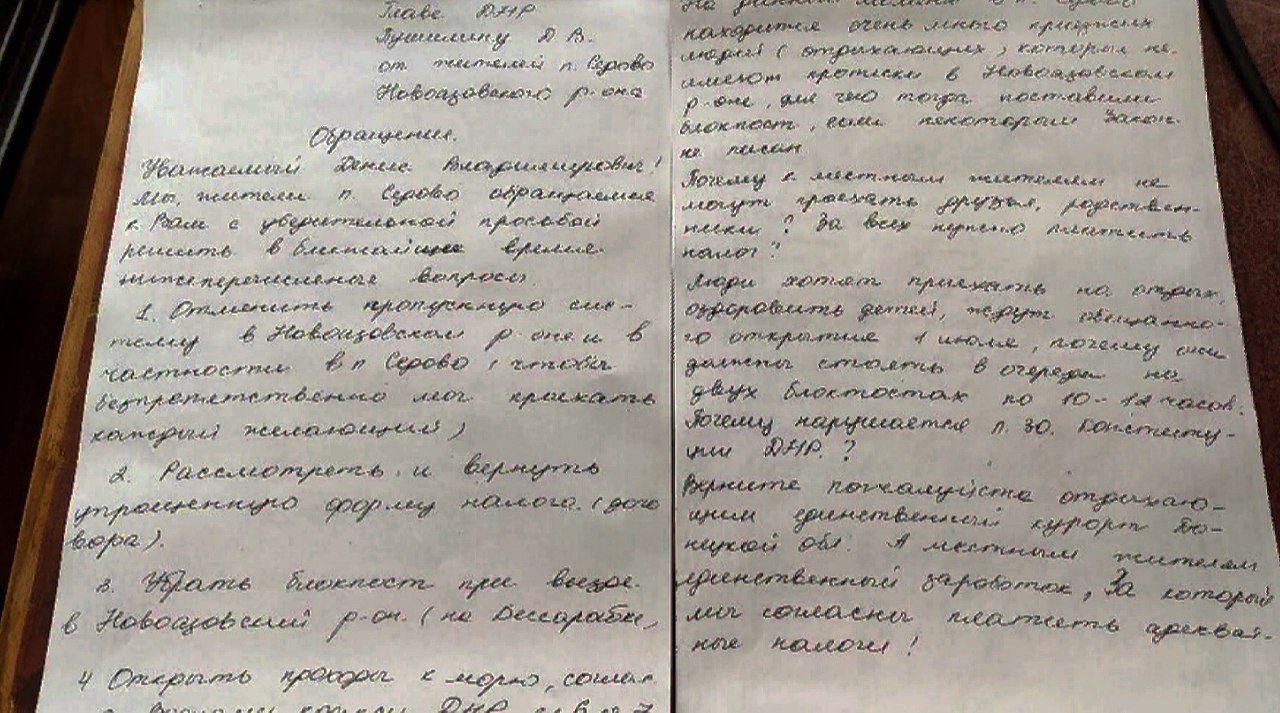 Главе ДНР
Пушилину Д В.
от жителей п. Седово
Новоазовского р-она
Обращение.
Уважаемый Денис Владимирович!
Мы, жители п. Седово обращаемся
к Вам с убедительной просьбой
решить в ближайшее время
нижеперечисленые вопросы
1. Отменить пропускную сис-
тему в Новоазовском р-оне и в
частности в п Седово (чтобы
безпрепятственно мог приехать
каждый желающий)
2. Рассмотреть и вернуть
упрощенную форму налога. (дого
вора).
3. Убрать блокпост при въезде
в Новоазовский р-он. (на Бессарабке)
4 Открыть проходы к морю, соглас
ДНР
На данный момент в п. Седово
находится очень много приезжих
людей (отдыхающих) которые не
имеют прописки в Новоазовском
р-оне, для чего тогда поставили
блокпост, если некоторым закон
не писан.
Почему к местным жителям не
могут приехать друзья, родствен-
ники? За всех нужно платить
налог?
Люди хотят приехать на отдых,
оздоровить детей, ждут обещанно-
го открытия 1 июля, почему они
должны стоять в очереди на
двух блокпостах по 10-12 часов.
Почему нарушается п. 30. Конститу-
ции ДНР.?
Верните пожалуйста отдыхаю-
щим единственный курорт До-
нецкой обл. А местным жителям
единственный заработок, За который
мы согласны платить адекват-
ные налоги!